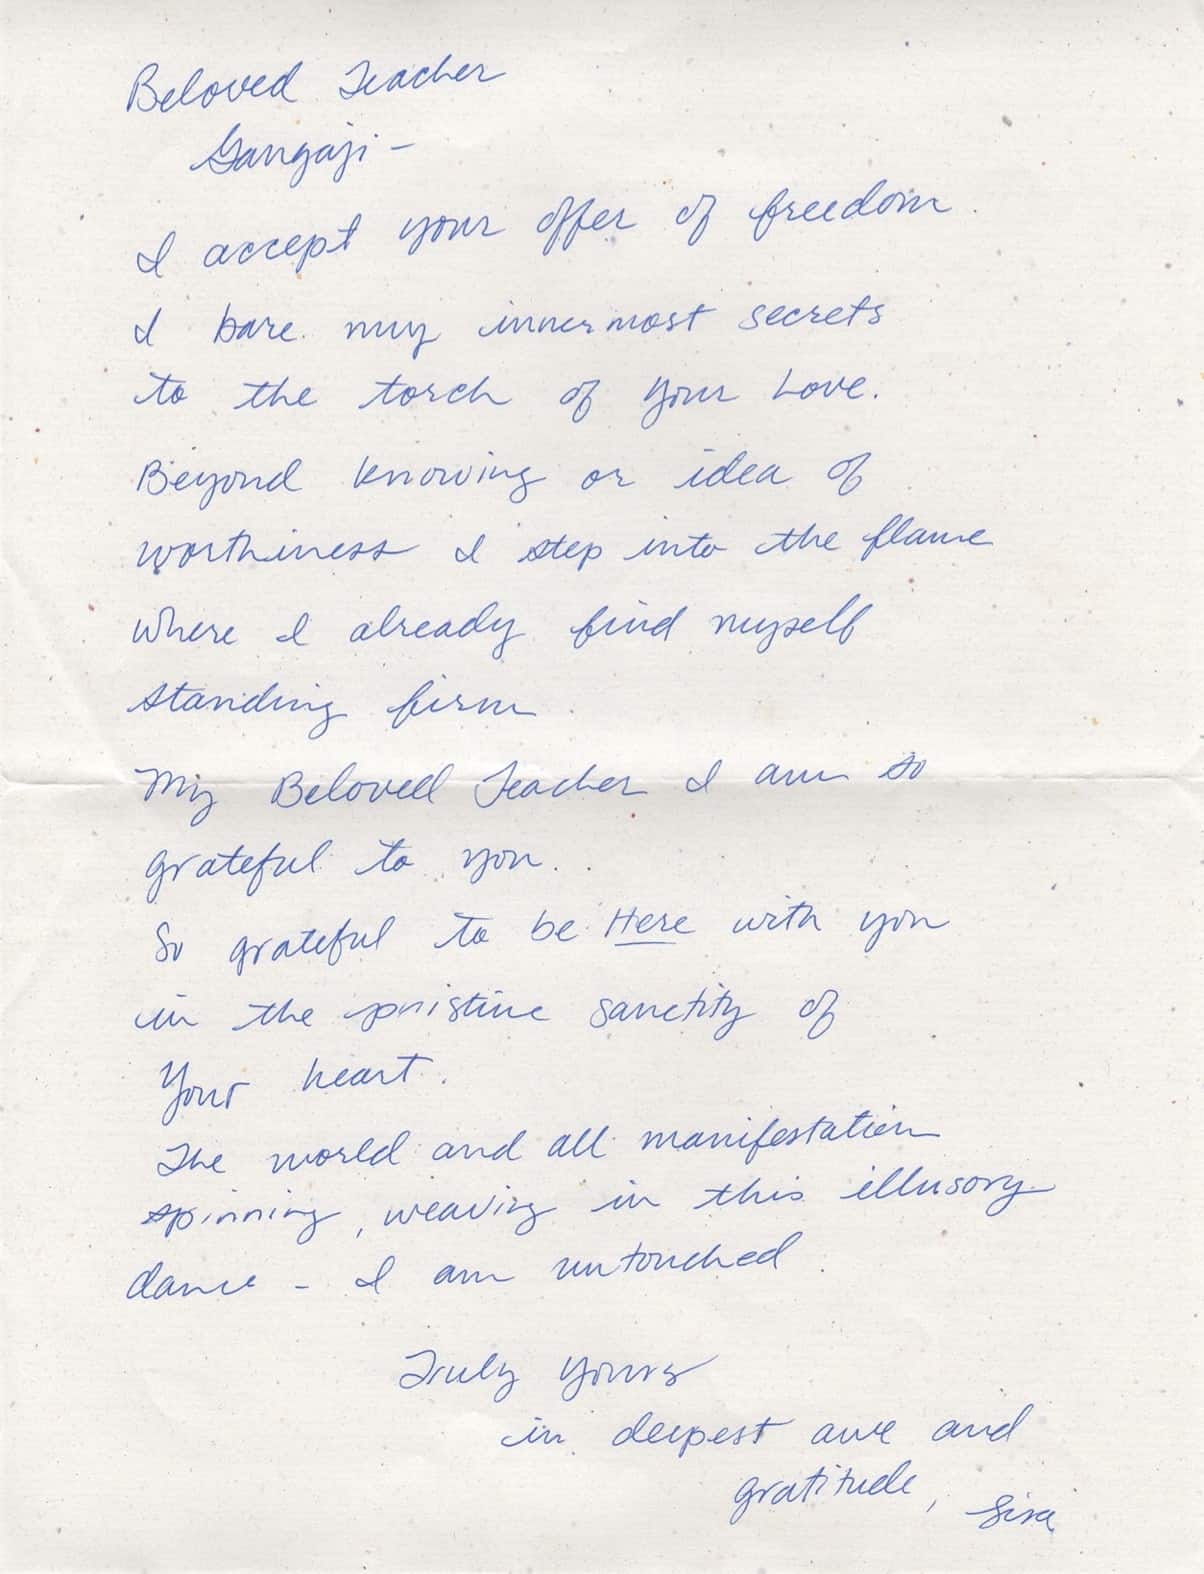 Beloved Teacher
Gangaji -
I accept your offer of freedom.
I bare my innermost secrets
to the torch of your Love.
Beyond knowing or idea of
worthiness I step into the flame
where I already find myself
standing firm.
My Beloved Teacher I am so
grateful to you.
So grateful to be Here with you
in the pristine sanctity of
Your heart.
The world and all manifestation
spinning, weaving in this illusory
dance - I am untouched.
Truly Yours
in deepest awe and
gratitude,